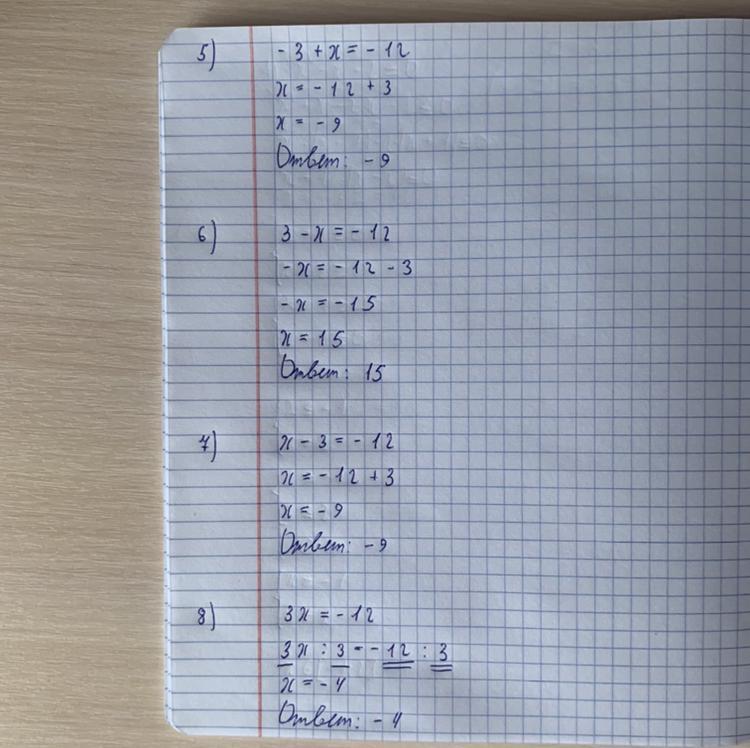 5) - 3 + x = - 12
x = - 12 + 3
x = - 9
Ответ: - 9
6) 3 - x = - 12
- x = - 12 - 3
- x = - 15
x = 15
Ответ: 15
7) x - 3 = - 12
x = - 12 + 3
x = - 9
Ответ: - 9
8) 3x = - 12
3x : 3 = - 12 : 3
x = - 4
Ответ: - 4